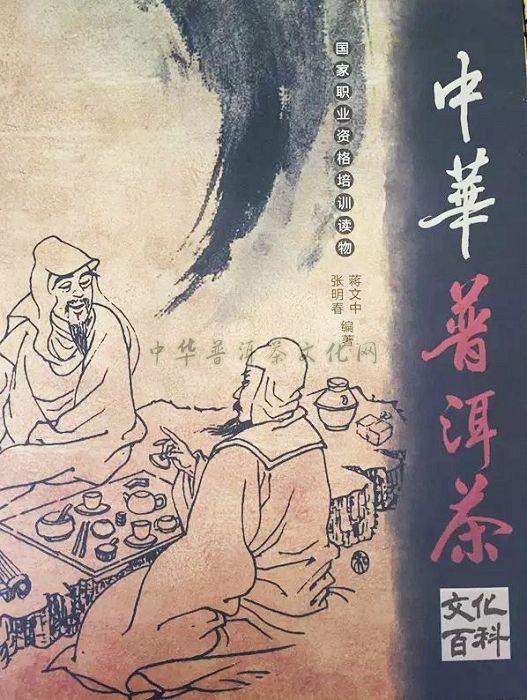 中華普洱茶
文化
百科
国家职业资格培训读物
蒋文中
张明春
编著
中华普洱茶文化网